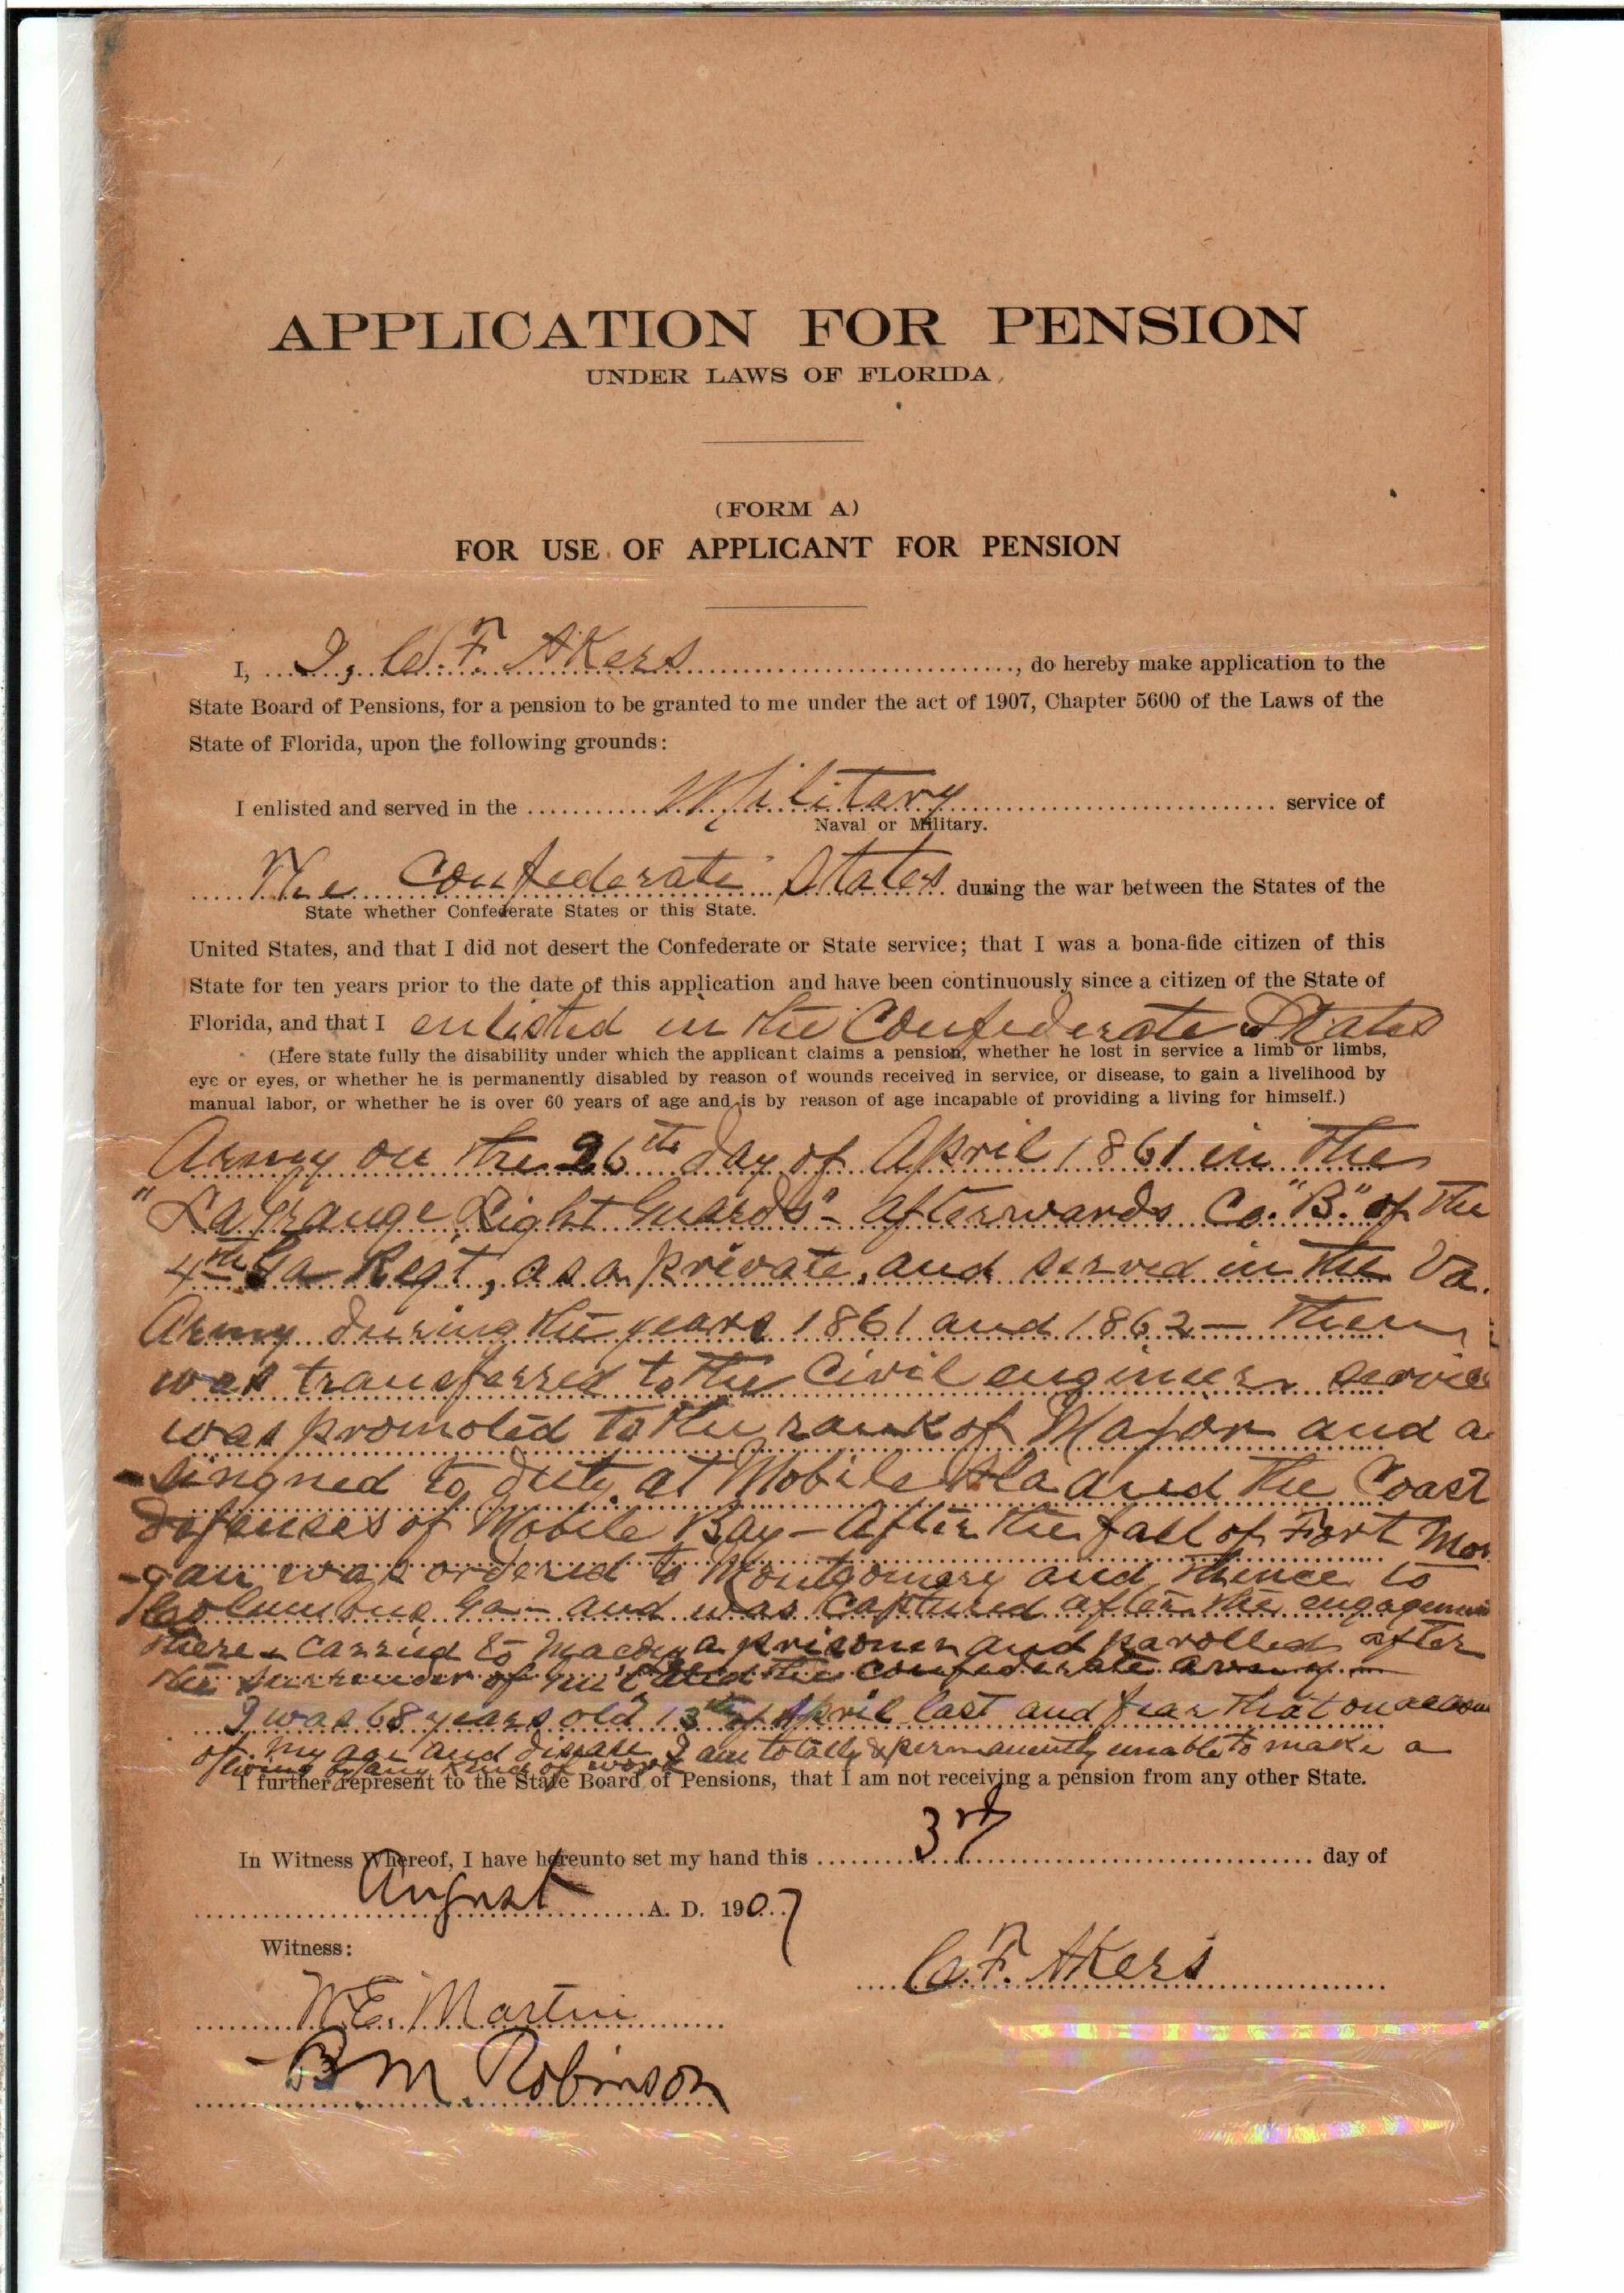 APPLICATION FOR PENSION
UNDER LAWS OF FLORIDA,
(FORM A)
FOR USE OF APPLICANT FOR PENSION
I, I, C. F. Akers, do hereby make application to the
State Board of Pensions, for a pension to be granted to me under the act of 1907, Chapter 5600 of the Laws of the
State of Florida, upon the following grounds:
I enlisted and served in the Military service of
Naval or Military.
The Confederate States during the war between the States of the
State whether Confederate States or this State.
United States, and that I did not desert the Confederate or State service; that I was a bona-fide citizen of this
State for ten years prior to the date of this application and have been continuously since a citizen of the State of
Florida, and that I enlisted in the Confederate States
(Here state fully the disability under which the applicant claims a pension, whether he lost in service a limb or limbs,
eye or eyes, or whether he is permanently disabled by reason of wounds received in service, or disease, to gain a livelihood by
manual labor, or whether he is over 60 years of age and is by reason of age incapable of providing a living for himself.)
Army on the 26th day of April 1861 in the
"LaGrange Light Guards" - afterwards Co. "B" of the
4th Ga Regt, as a private, and served in the Va.
Army during the years 1861 and 1862 - then
was transferred to the Civil engineer service
was promoted to the rank of Major and a
-singned to duty at Mobile Ala and the Coast
defenses of Mobile Bay - After the fall of Fort Mor
-gan was ordered to Montgomery and thence to
Columbus Ga - and was captured after the engagement
there & carried to Macon a prisoner and parolled after
the surrender of the Confederate army -
I was 68 years old 13th of April last and fear that on account
of my age and disease I am totally & permanently unable to make a
living by any kind of work
I further represent to the State Board of Pensions, that I am not receiving a pension from any other State.
In Witness Whereof, I have hereunto set my hand this 3rd day of
August A. D. 1907
Witness:
C. F. Akers
W. E. Martin
B M Robinson